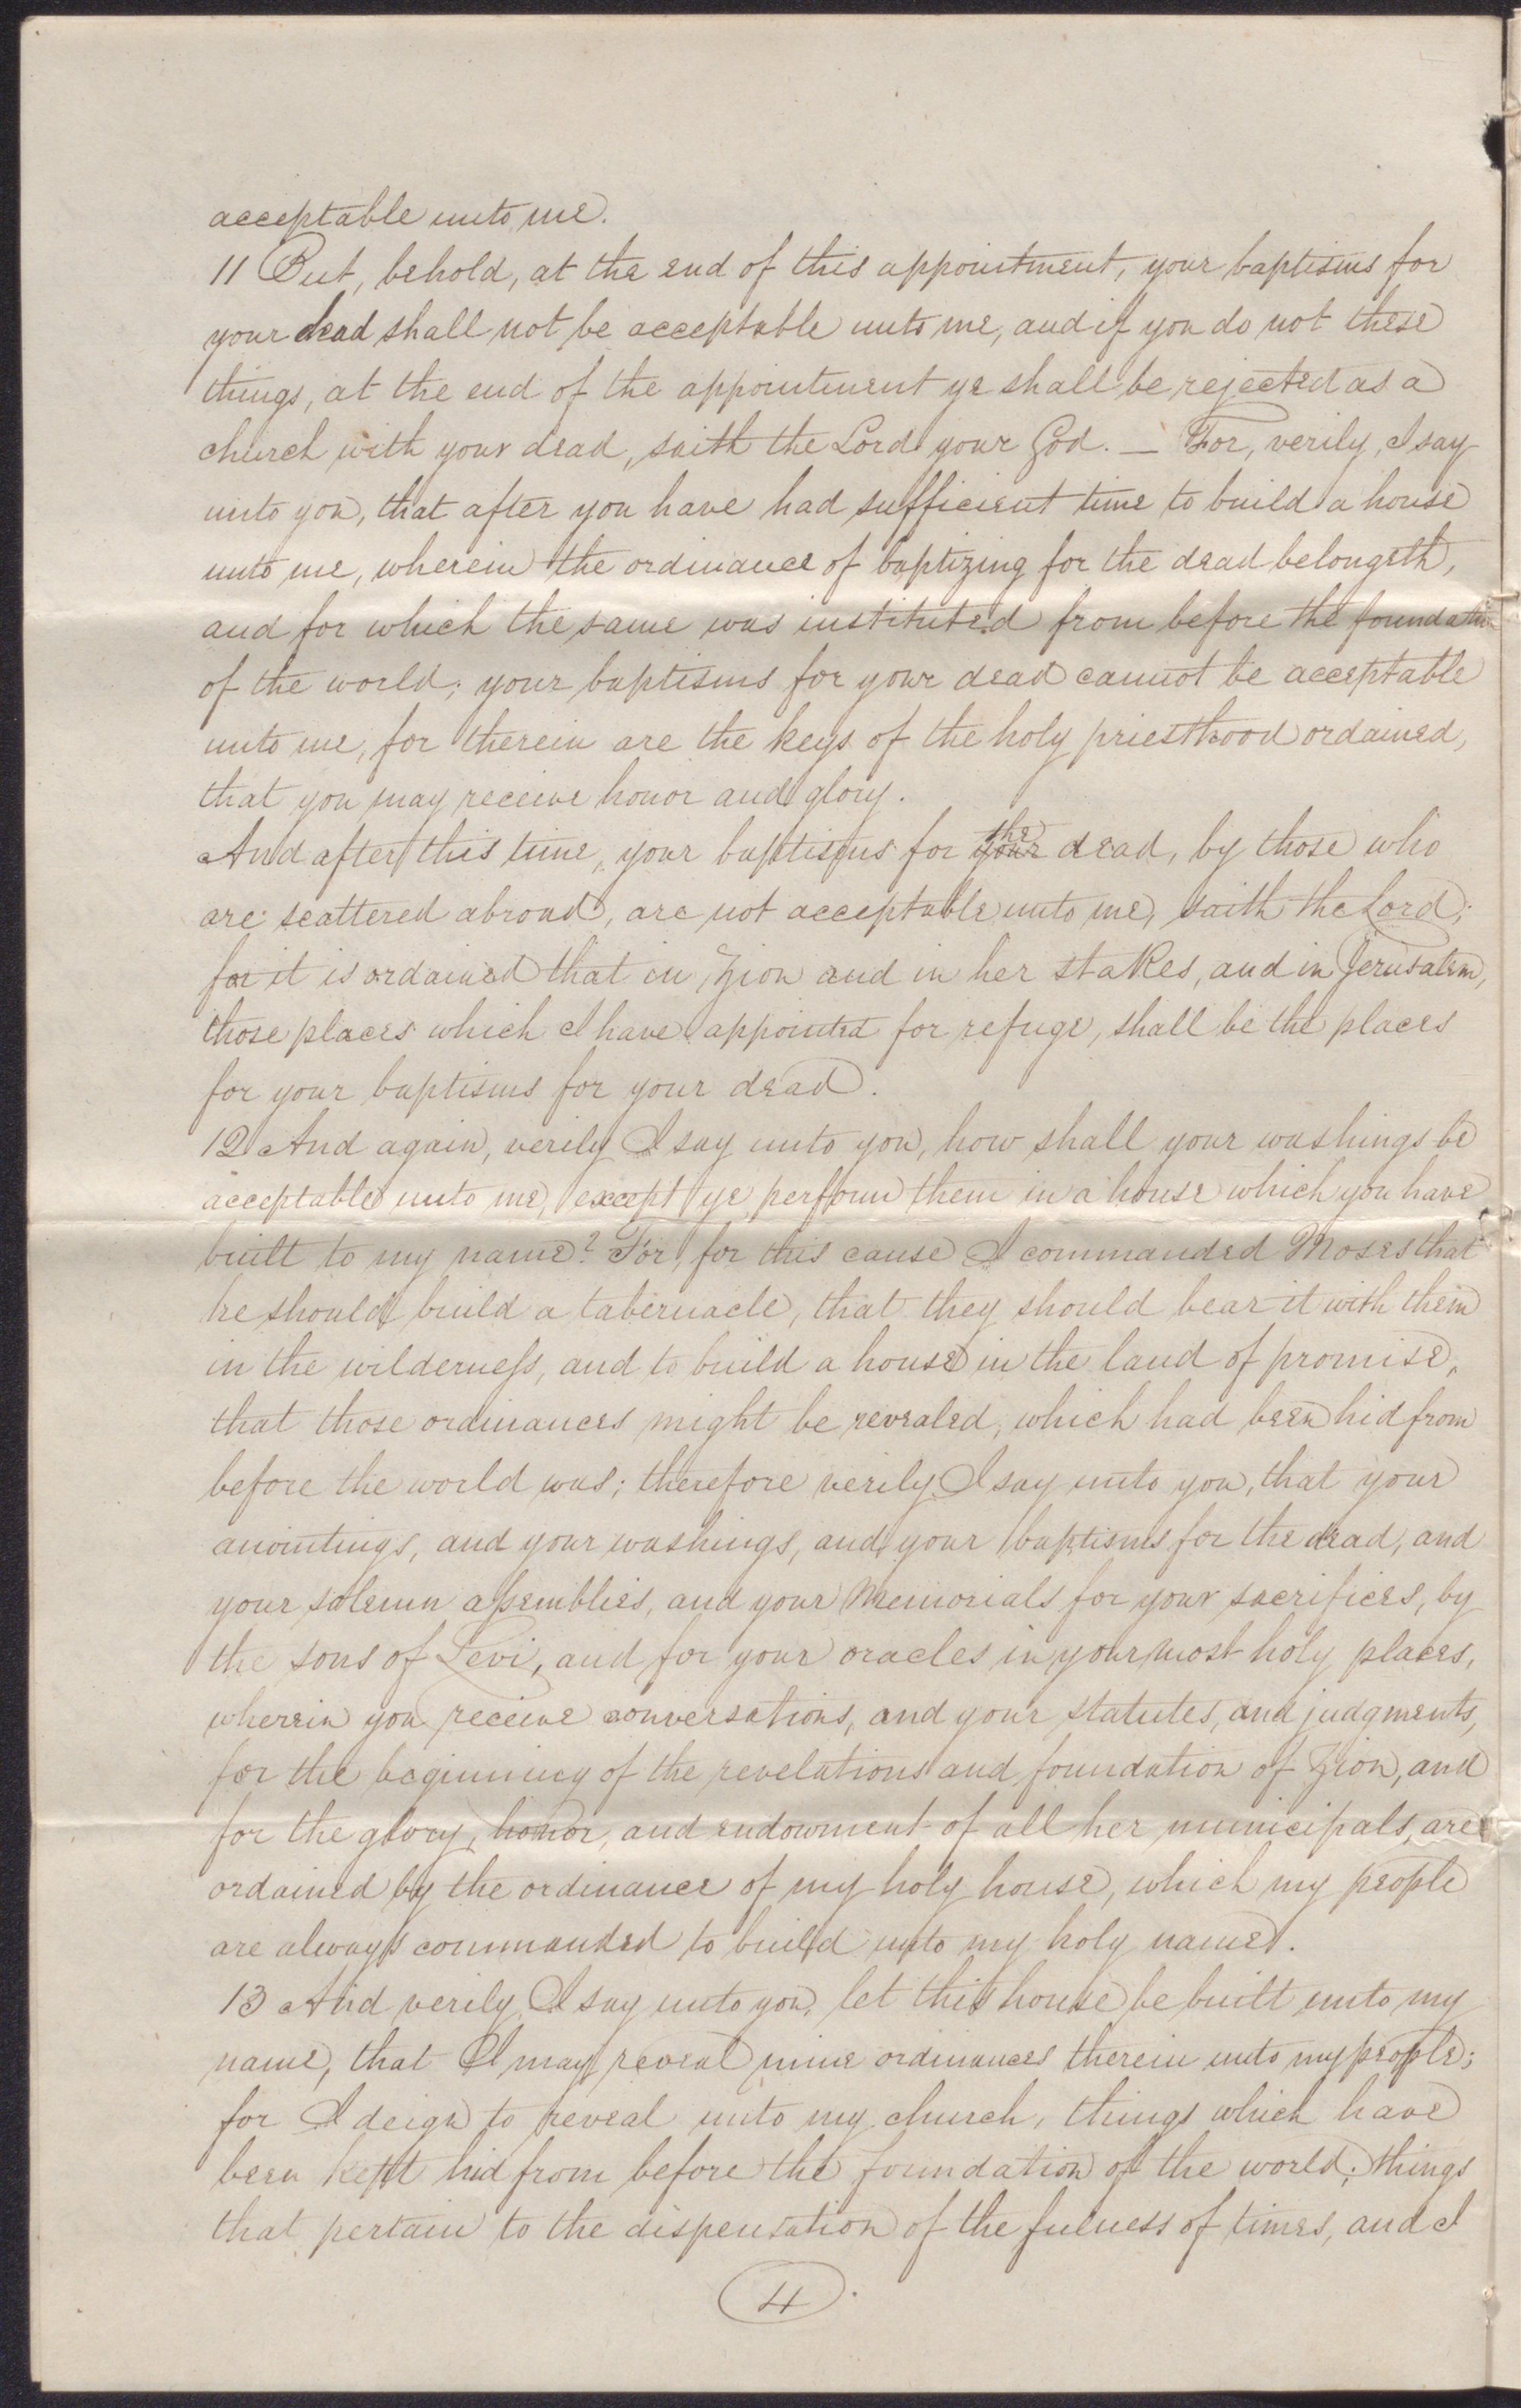 acceptable unto me.
11 But, behold, at the end of this appointment, your baptisms for
your dead shall not be acceptable unto me, and if you do not these
things, at the end of the appointment ye shall be rejected as a
church with your dead, saith the Lord your God. — For, verily, I say
unto you, that after you have had sufficient time to build a house
unto me, wherein the ordinance of baptizing for the dead belongeth,
and for which the same was instituted from before the foundation
of the world; your baptisms for your dead cannot be acceptable
unto me, for therein are the keys of the holy priesthood ordained,
that you may receive honor and glory.
And after this time, your baptisms for your the dead, by those who
are scattered abroad, are not acceptable unto me, saith the Lord;
for it is ordained that in Zion and in her stakes, and in Jerusalem,
those places which I have appointed for refuge, shall be the places
for your baptisms for your dead.
12 And again, verily I say unto you, how shall your washings be
acceptable unto me, except ye perform them in a house which you have
built to my name? For, for this cause I commanded Moses that
he should build a tabernacle, that they should bear it with them
in the wilderneſs, and to build a house in the land of promise,
that those ordinances might be revealed, which had been hid from
before the world was; therefore verily I say unto you, that your
anointings, and your washings, and your baptisms for the dead, and
your solemn aſsemblies, and your Memorials for your sacrifices, by
the sons of Levi, and for your oracles in your most holy places,
wherein you receive conversations, and your statutes, and judgments,
for the beginning of the revelations and foundation of Zion, and
for the glory, honor, and endowment of all her municipals, are
ordained by the ordinance of my holy house, which my people
are always commanded to build unto my holy name.
13 And verily I say unto you, let this house be built unto my
name, that I may reveal mine ordinances therein unto my people;
for I deign to reveal unto my church, things which have
been kept hid from before the foundation of the world; things
that pertain to the dispensation of the fulness of times, and I
4.